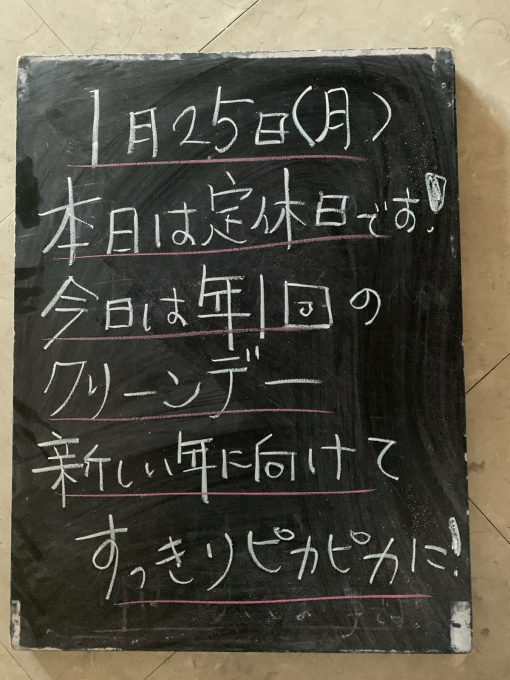 1月25日(月)
本日は定休日です!
今日は年1回の
クリーンデー
新しい年に向けて
すっきりピカピカに!